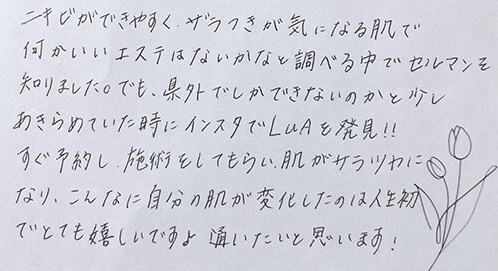 ニキビができやすく、ザラつきが気になる肌で
何かいいエステはないかなと調べる中でセルマンを
知りました。でも、県外でしかできないのかと少し
あきらめていた時にインスタでLuAを発見!!
すぐ予約し、施術をしてもらい、肌がサラツヤに
なり、こんなに自分の肌が変化したのは人生初
でとても嬉しいですよ 通いたいと思います!